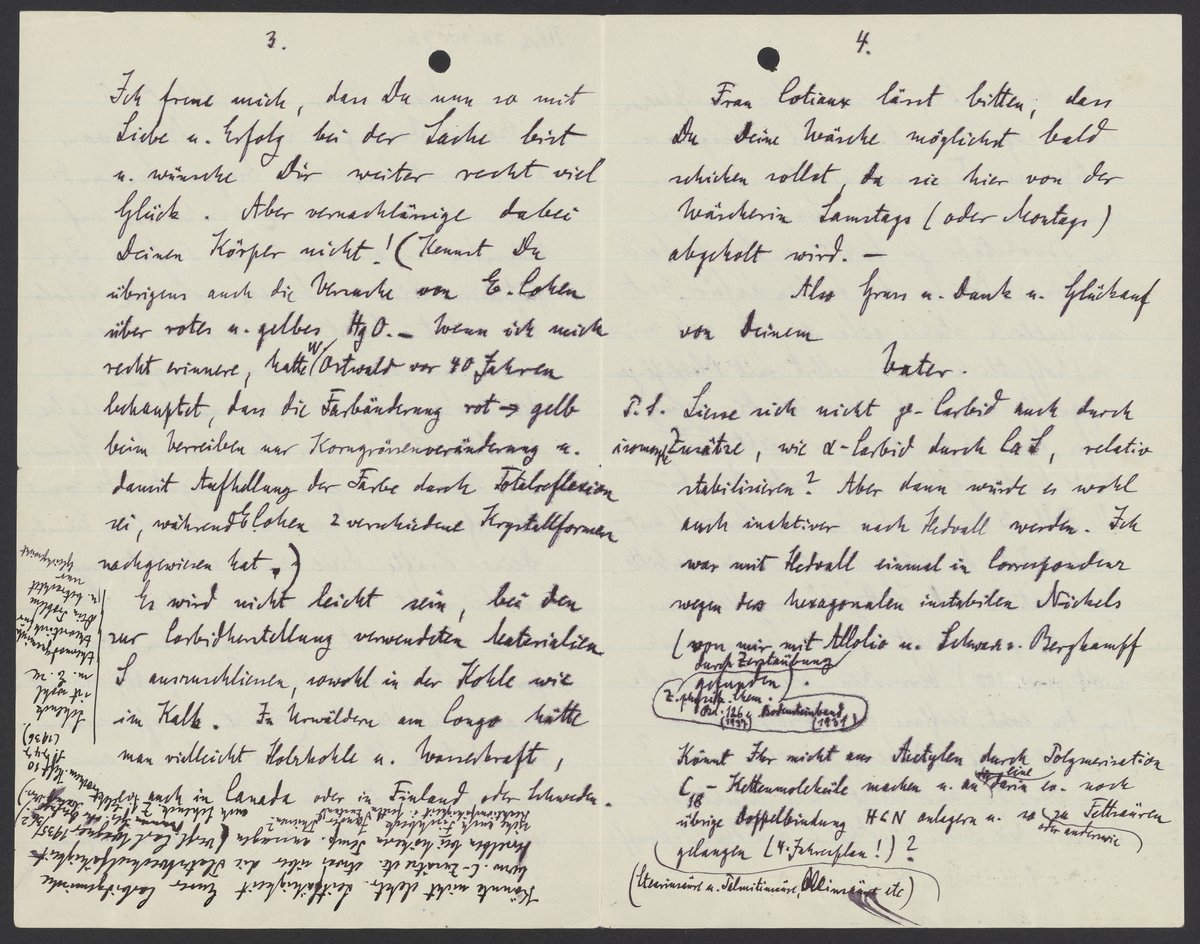 3.
Ich freue mich, dass Du nun so mit
Liebe u. Erfolg bei der Sache bist
u. wünsche Dir weiter recht viel
Glück. Aber vernachlässige dabei
Deinen Körper nicht! (Kennst Du
übrigens auch die Versuche von E. Cohen
über rotes u. gelbes HgO. – Wenn ich mich
recht erinnere, hatte W. Ostwald vor 40 Jahren
behauptet, dass die Farbänderung rot → gelb
beim Verreiben nur Korngrössenveränderung u.
damit Aufhellung der Farbe durch Totalreflexion
sei, während E. Cohen 2 verschiedene Krystallformen
nachgewiesen hat.)
Es wird nicht leicht sein, bei den
zur Carbidherstellung verwendeten Materialien
S auszuschliessen, sowohl in der Kohle wie
im Kalk. In Urwäldern am Congo hätte
man vielleicht Holzkohle u. Wasserkraft,
auch in Canada oder in Finland oder Schweden.
Könnte nicht elektr. Leitfähigkeit Eurer Carbidgemische
bezw. C-Zusätze etc. etwas über die
derselben bei hohen Temp. aussagen
4.
Frau Cotiaux lässt bitten, dass
Du Deine Wäsche möglichst bald
schicken sollst, da sie hier von der
Wäscherin Samstags (oder Montags)
abgeholt wird. –
Also Gruss u. Dank u. Glückauf
von Deinem
Vater.
P.S. Liesse sich nicht γ-Carbid auch durch
isomorphe Zusätze, wie α-Carbid durch CaS, relativ
stabilisieren? Aber dann würde es wohl
auch inaktiver nach Hedvall werden. Ich
war mit Hedvall einmal in Correspondenz
wegen des hexagonalen instabilen Nickels
(von mir mit Allolio u. Bergkampf
durch Zerstäubung
gefunden).
Z. physik. Chem. A.
Bd. 126 u. Bodensteinband
(1927) (1931)
Könnt Ihr nicht aus Acetylen durch Polymerisation
C18-Kettenmoleküle machen u. an eine darin ev. noch
übrige Doppelbindung HCN anlagern u. so zu Fettsäuren
oder anderswie
gelangen (4-Jahresplan!)?
(Stearinsäure u. Palmitinsäure, Ölsäure etc)